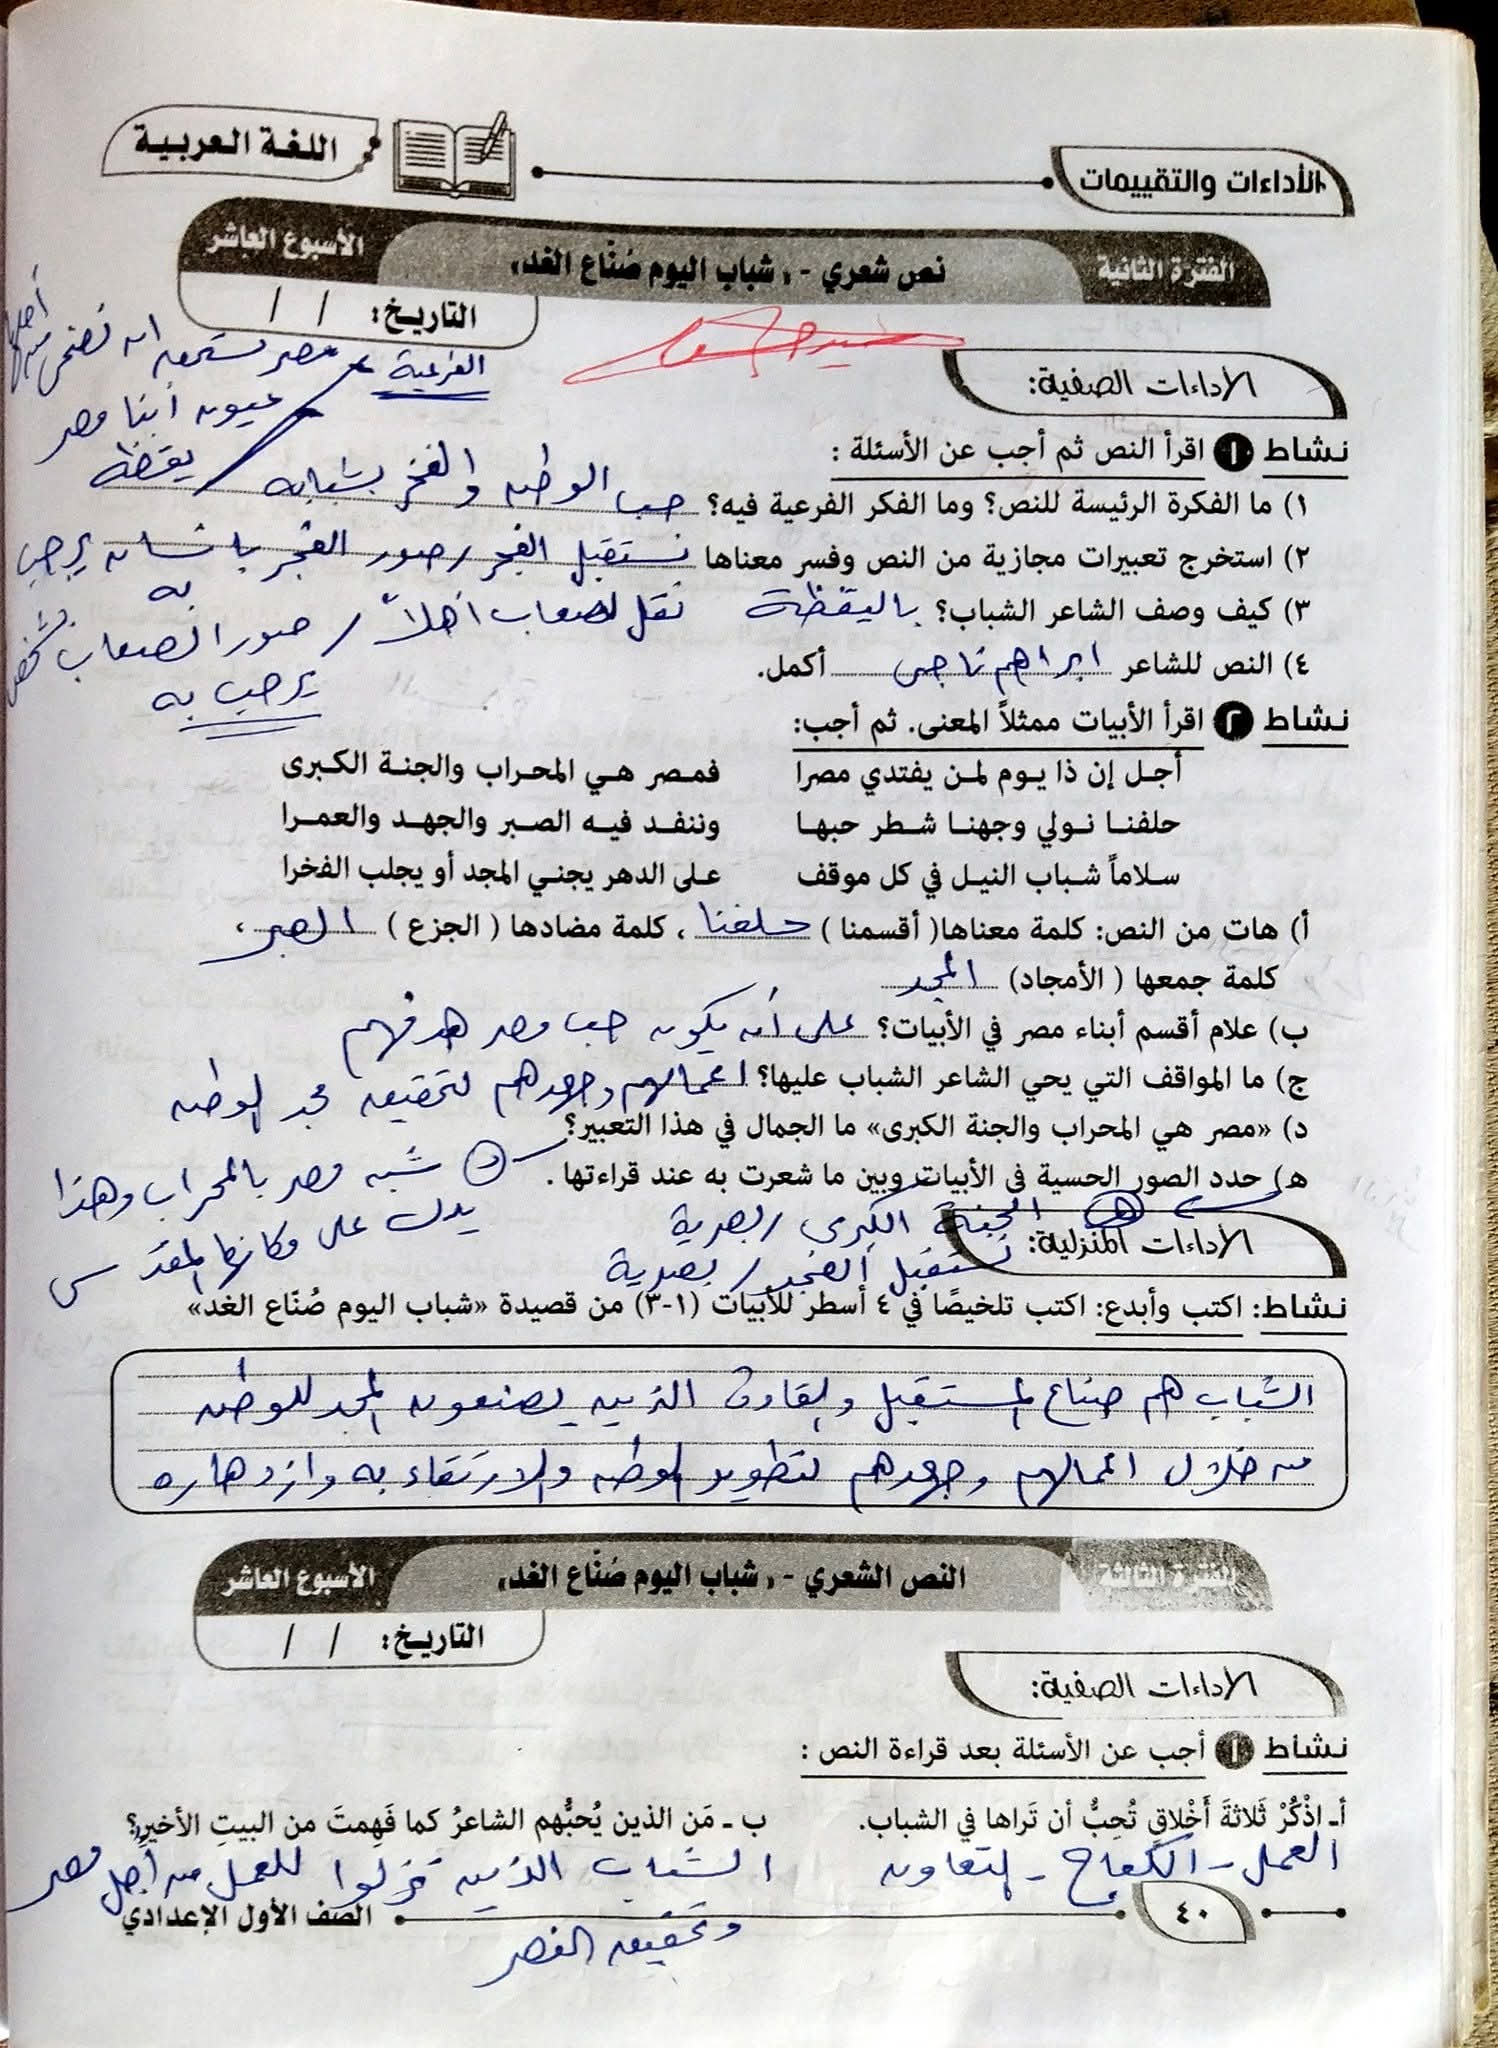 الأداءات والتقييمات
اللغة العربية
الفترة الثانية
نص شعري - «شباب اليوم صُنّاع الغد»
الأسبوع العاشر
التاريخ: / /
الأداءات الصفية:
الفرعية
مصر تستحق ان نضحي من أجلها
عيون أبنا مصر
يقظة
نشاط ١ اقرأ النص ثم أجب عن الأسئلة :
١) ما الفكرة الرئيسة للنص؟ وما الفكر الفرعية فيه؟ حب الوطن والفخر بشبابه
٢) استخرج تعبيرات مجازية من النص وفسر معناها نستقبل الفجر / صور الفجر بانسان يرحب به
٣) كيف وصف الشاعر الشباب؟ باليقظة
نقل لصعاب أهلاً / صور الصعاب بشخص
يرحب به
٤) النص للشاعر ابراهم ناجى أكمل.
نشاط ٢ اقرأ الأبيات ممثلاً المعنى. ثم أجب:
أجل إن ذا يوم لمن يفتدي مصرا فمصر هي المحراب والجنة الكبرى
حلفنا نولي وجهنا شطر حبها وننفد فيه الصبر والجهد والعمرا
سلاماً شباب النيل في كل موقف على الدهر يجني المجد أو يجلب الفخرا
أ) هات من النص: كلمة معناها( أقسمنا ) حلفنا ، كلمة مضادها ( الجزع ) الصبر ،
كلمة جمعها ( الأمجاد) المجد
ب) علام أقسم أبناء مصر في الأبيات؟ على أن يكون حب مصر هدفهم
ج) ما المواقف التي يحي الشاعر الشباب عليها؟ اعمالهم وجهدهم لتحقيق مجد لوطن
د) «مصر هي المحراب والجنة الكبرى» ما الجمال في هذا التعبير؟
ه) حدد الصور الحسية في الأبيات وبين ما شعرت به عند قراءتها .
د شبه مصر بالمحراب وهذا
يدل على مكانها المقدس
هـ الجنة الكبرى / بصرية
نستقبل الفجر / بصرية
الأداءات المنزلية:
نشاط: اكتب وأبدع: اكتب تلخيصًا في ٤ أسطر للأبيات (١-٣) من قصيدة «شباب اليوم صُنّاع الغد»
الشباب هم صناع المستقبل والقادة الذين يصنعون المجد للوطن
من خلال اعمالهم وجهدهم لتطوير لوطن والارتقاء به وازدهاره
الفترة الثالثة
النص الشعري - «شباب اليوم صُنّاع الغد»
الأسبوع العاشر
التاريخ: / /
الأداءات الصفية:
نشاط ١ أجب عن الأسئلة بعد قراءة النص :
أ- اذْكُرْ ثَلاثةَ أَخْلاقٍ تُحِبُّ أن تَراها في الشباب.
العمل - الكفاح - لتعاون
ب - مَن الذين يُحبُّهم الشاعرُ كما فَهِمتَ من البيتِ الأخيرِ؟
الشباب الذين نزلوا للعمل من أجل مصر
وتحقيق النصر
٤٠
الصف الأول الإعدادي